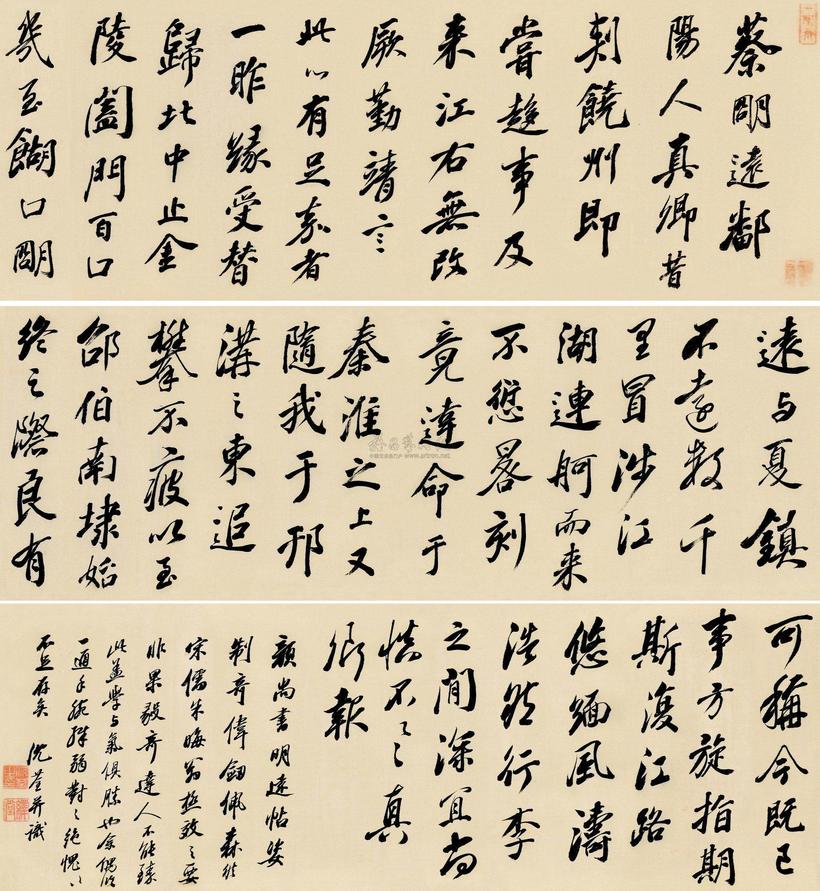 蔡明遠鄱
陽人真卿昔
刺饒州即
嘗趨事及
来江右無改
厥勤靖言
此心有足嘉者
一昨緣受替
歸北中止金
陵闔門百口
幾至餬口明
遠与夏鎮
不遠數千
里冒涉江
湖連舸而来
不愆晷刻
竟達命于
秦淮之上又
隨我于邗
溝之東追
攀不疲以至
邵伯南埭始
終之際良有
可稱今既已
事方旋指期
斯復江路
悠緬風濤
浩然行李
之間深宜尚
慎不〻真
卿報
顏尚書明遠帖姿
制奇偉劍佩森然
宋儒朱晦翁極致之要
昨果毅奇達人不能臻
此蓋學与氣俱勝也余偶臨
一過手腕孱弱對之絕愧〻
不足存矣 沈荃并識